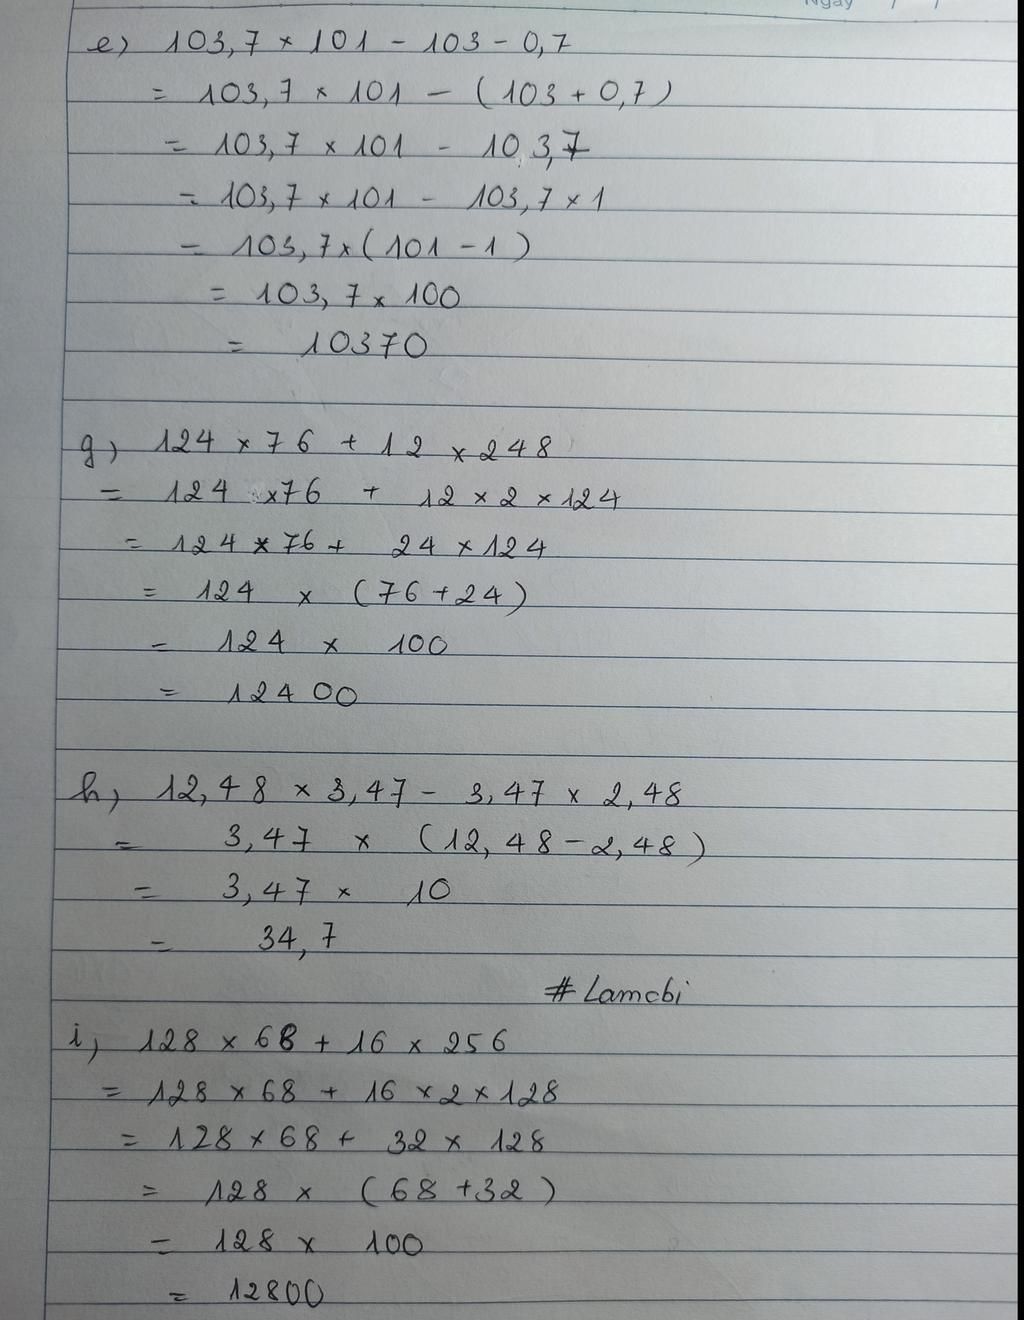 Ngày / /
e) 103,7 × 101 - 103 - 0,7
= 103,7 × 101 - (103 + 0,7)
= 103,7 × 101 - 103,7
= 103,7 × 101 - 103,7 × 1
= 103,7 × (101 - 1)
= 103,7 × 100
= 10370
g) 124 × 76 + 12 × 248
= 124 × 76 + 12 × 2 × 124
= 124 × 76 + 24 × 124
= 124 × (76 + 24)
= 124 × 100
= 12400
h) 12,48 × 3,47 - 3,47 × 2,48
= 3,47 × (12,48 - 2,48)
= 3,47 × 10
= 34,7
# Lamcbi
i) 128 × 68 + 16 × 256
= 128 × 68 + 16 × 2 × 128
= 128 × 68 + 32 × 128
= 128 × (68 + 32)
= 128 × 100
= 12800